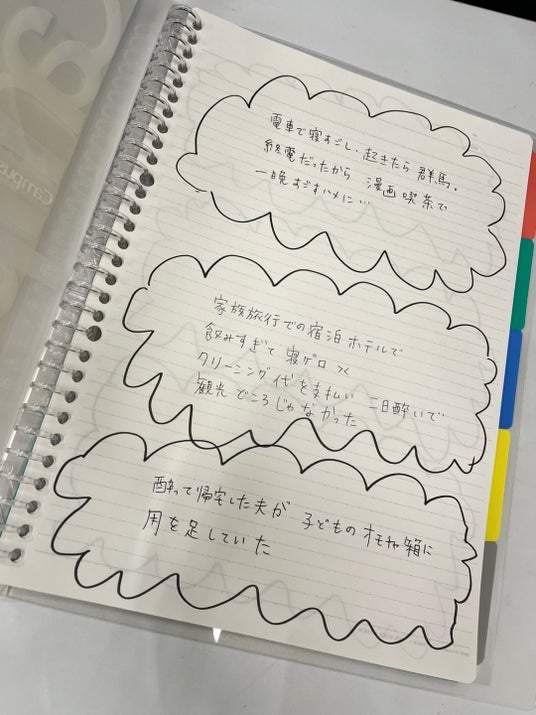 電車で寝すごし、起きたら群馬。
終電だったから 漫画喫茶で
一晩すごすハメに…
家族旅行での宿泊ホテルで
飲みすぎて寝ゲロ
クリーニング代を支払い 二日酔いで
観光どころじゃなかった
酔って帰宅した夫が 子どものオモチャ箱に
用を足していた
Campus